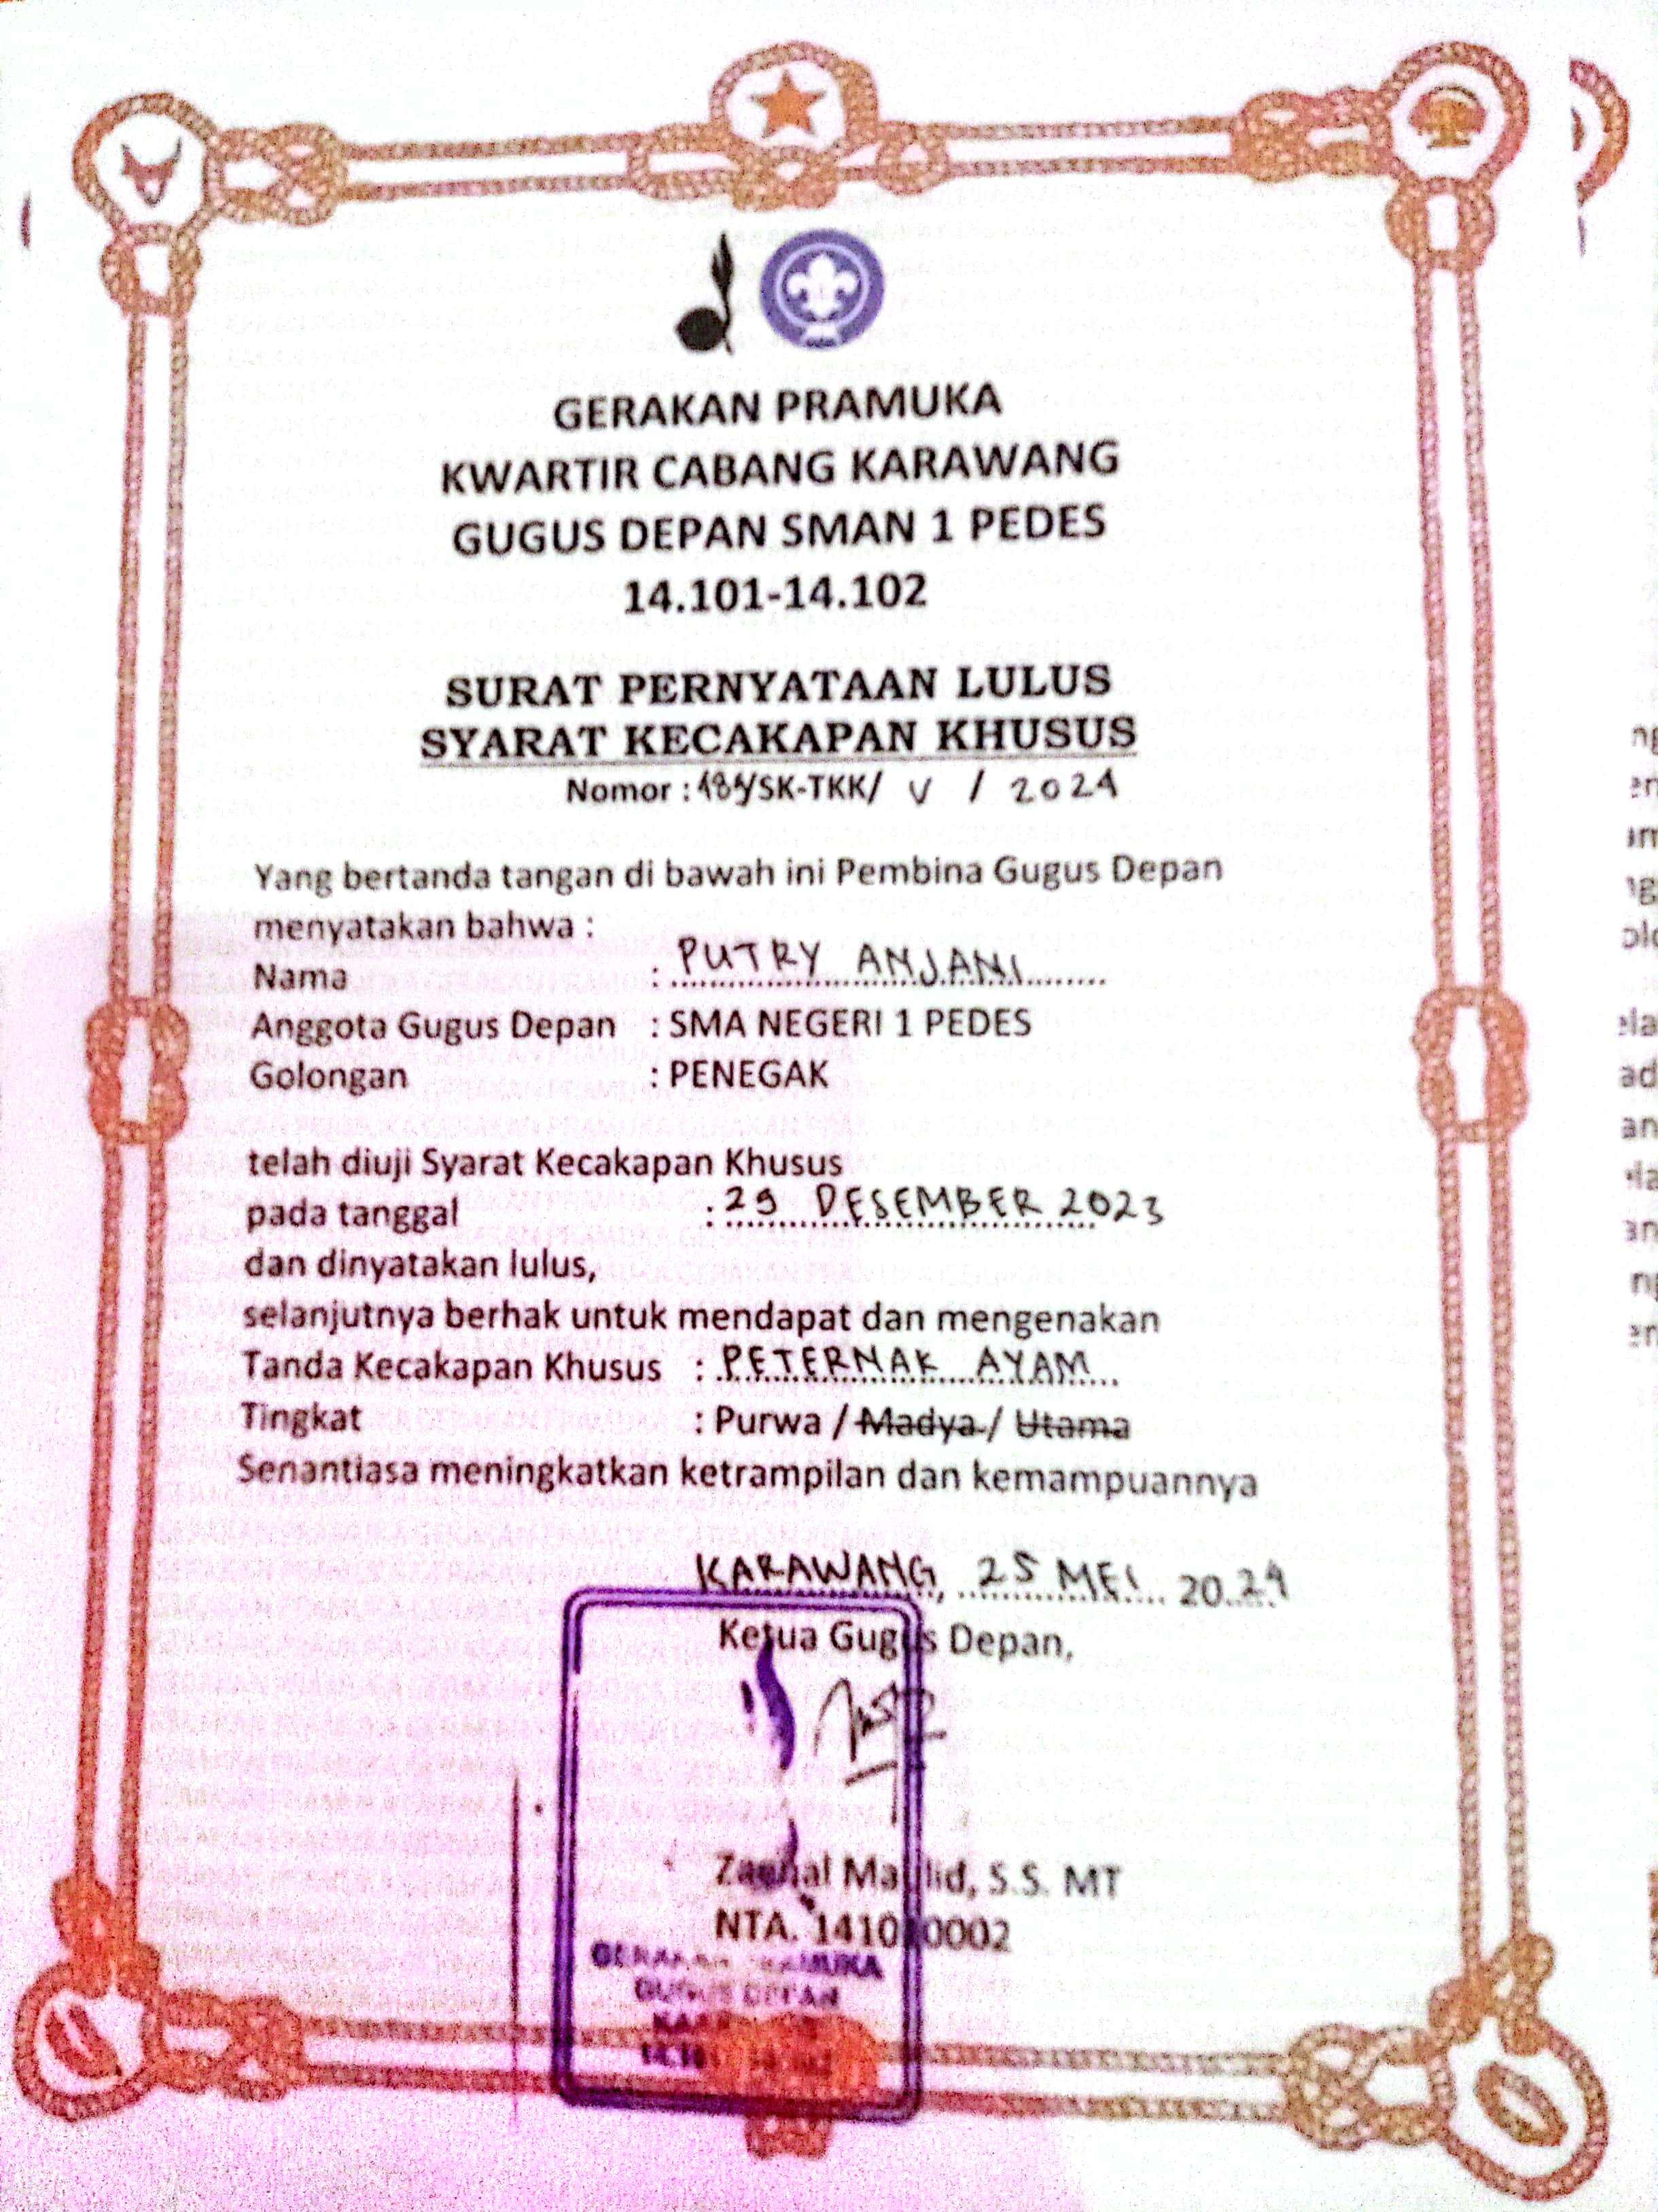 GERAKAN PRAMUKA
KWARTIR CABANG KARAWANG
GUGUS DEPAN SMAN 1 PEDES
14.101-14.102
SURAT PERNYATAAN LULUS
SYARAT KECAKAPAN KHUSUS
Nomor : /SK-TKK/ V / 2024
Yang bertanda tangan di bawah ini Pembina Gugus Depan
menyatakan bahwa :
Nama : PUTRY ANJANI
Anggota Gugus Depan : SMA NEGERI 1 PEDES
Golongan : PENEGAK
telah diuji Syarat Kecakapan Khusus
pada tanggal : 29 DESEMBER 2023
dan dinyatakan lulus,
selanjutnya berhak untuk mendapat dan mengenakan
Tanda Kecakapan Khusus : PETERNAK AYAM
Tingkat : Purwa / Madya / Utama
Senantiasa meningkatkan ketrampilan dan kemampuannya
KARAWANG, 25 MEI 2024
Ketua Gugus Depan,
Maulid, S.S. MT
NTA.
GERAKAN PRAMUKA
GUGUS DEPAN